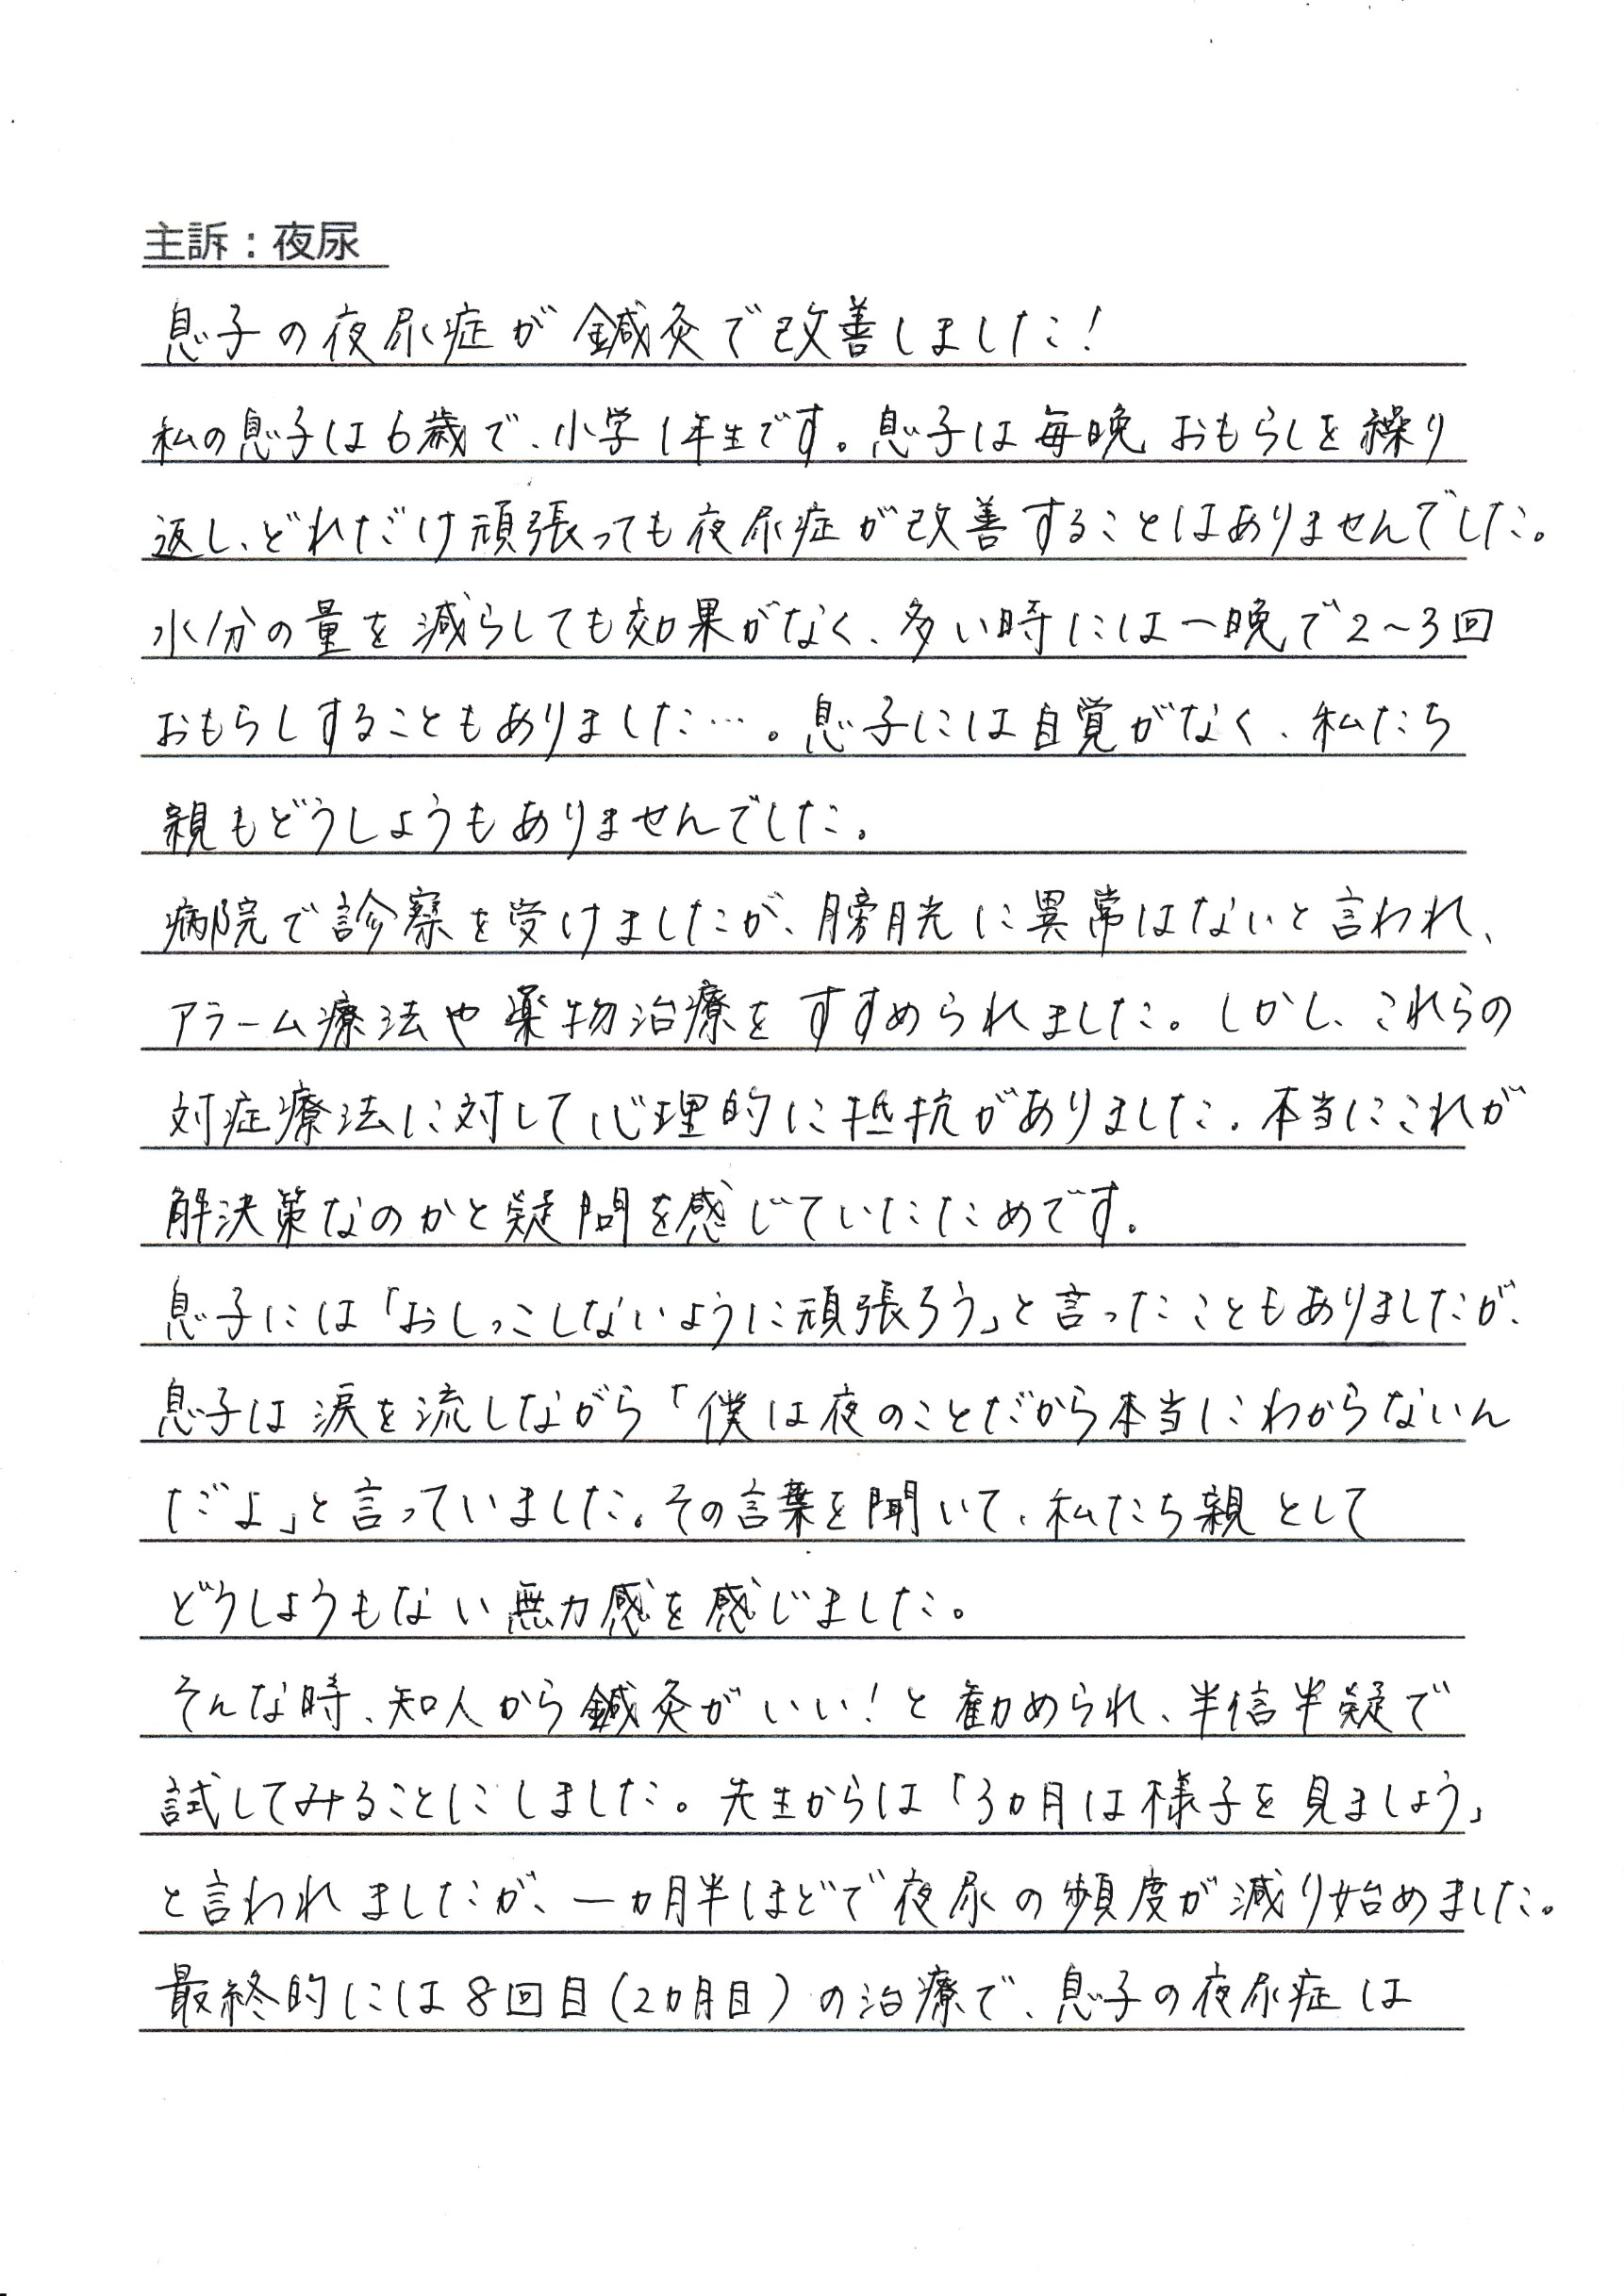 主訴：夜尿
息子の夜尿症が鍼灸で改善しました！
私の息子は6歳で、小学1年生です。息子は毎晩おもらしを繰り
返し、どれだけ頑張っても夜尿症が改善することはありませんでした。
水分の量を減らしても効果がなく、多い時には一晩で2～3回
おもらしすることもありました…。息子には自覚がなく、私たち
親もどうしようもありませんでした。
病院で診察を受けましたが、膀胱に異常はないと言われ、
アラーム療法や薬物治療をすすめられました。しかし、これらの
対症療法に対して心理的に抵抗がありました。本当にこれが
解決策なのかと疑問を感じていたためです。
息子には「おしっこしないように頑張ろう」と言ったこともありましたが、
息子は涙を流しながら「僕は夜のことだから本当にわからないん
だよ」と言っていました。その言葉を聞いて、私たち親として
どうしようもない無力感を感じました。
そんな時、知人から鍼灸がいい！と勧められ、半信半疑で
試してみることにしました。先生からは「3カ月は様子を見ましょう」
と言われましたが、一カ月半ほどで夜尿の頻度が減り始めました。
最終的には8回目(2カ月目)の治療で、息子の夜尿症は